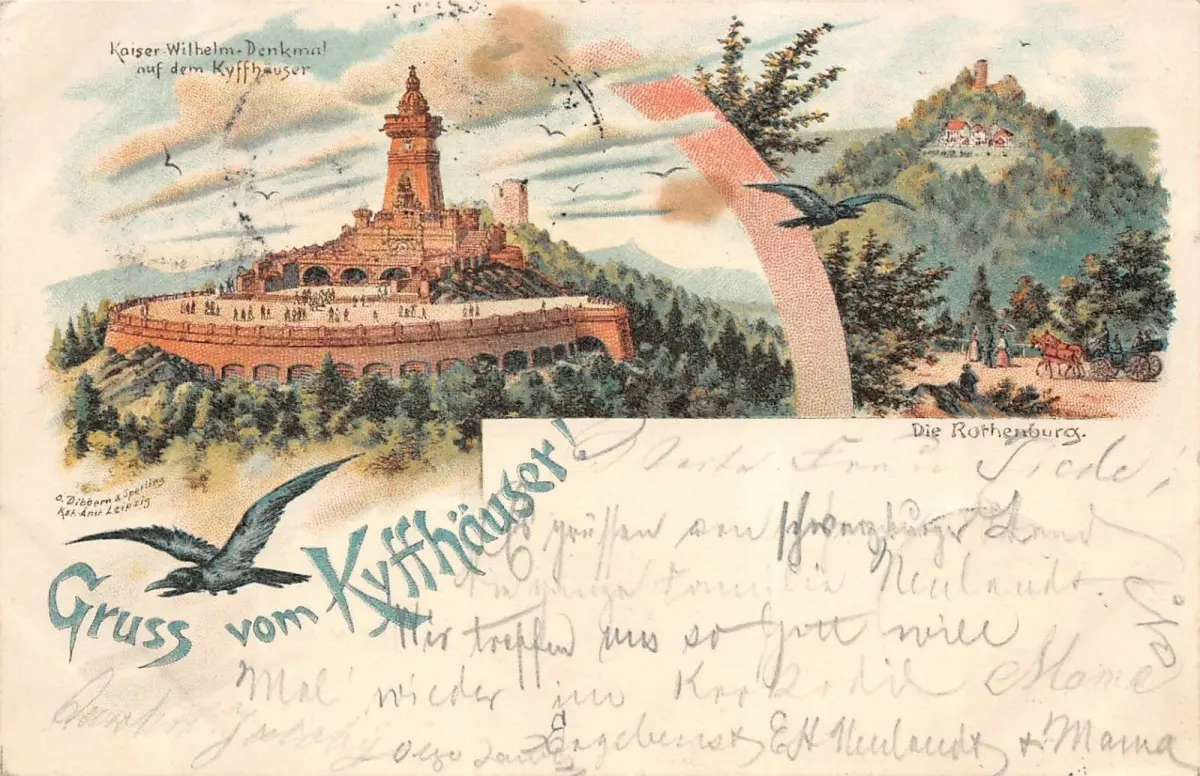 Kaiser-Wilhelm-Denkmal
auf dem Kyffhäuser
Die Rothenburg.
Dibbern & Sperling
Kst. Anst. Leipzig
Gruss vom Kyffhäuser!
Frau
grüssen von schwarzburger
ganze Familie Neulandt.
Wir treffen uns so Gott will
Mal wieder im Krokodil Mama
Ergebenst E H Neulandt & Mama